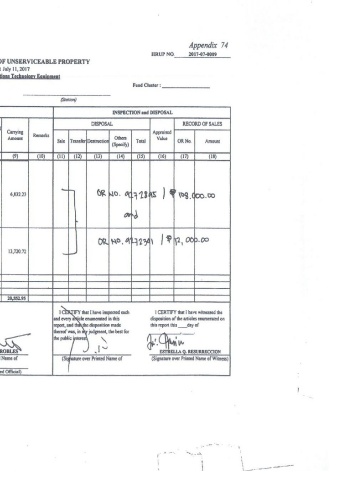 Appendix 74
IIRUP NO. 2017-07-0009
OF UNSERVICEABLE PROPERTY
July 11, 2017
tions Technology Equipment
Fund Cluster :
(Station)
INSPECTION and DISPOSAL
DISPOSAL
RECORD OF SALES
Carrying Amount
Remarks
Sale
Transfer
Destruction
Others (Specify)
Total
Appraised Value
OR No.
Amount
(9)
(10)
(11)
(12)
(13)
(14)
(15)
(16)
(17)
(18)
OR NO. 9272845 / ₱ 108,000.00
and
OR NO. 9272391 / ₱ 17,000.00
I CERTIFY that I have inspected each
and every article enumerated in this
report, and that the disposition made
thereof was, in my judgment, the best for
the public interest.
I CERTIFY that I have witnessed the
disposition of the articles enumerated on
this report this ___day of
ROBLES
ESTRELLA Q. RESURRECCION
Name of
(Signature over Printed Name of
(Signature over Printed Name of Witness)
ed Official)